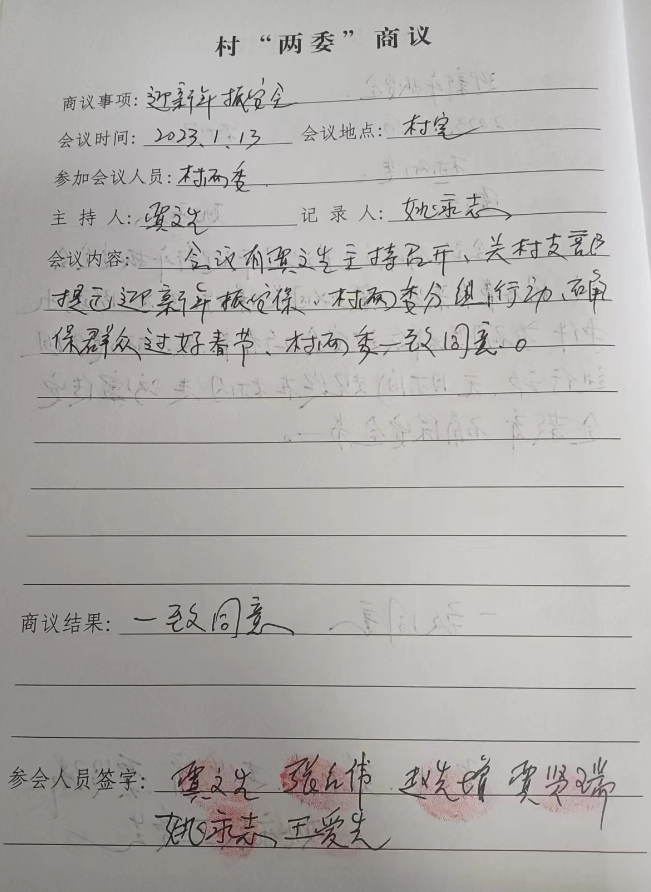 村“两委”商议
商议事项：迎新年 报安全
会议时间：2023.1.13 会议地点：村室
参加会议人员：村两委
主持人：贾文先 记录人：姚永志
会议内容：会议有贾文先主持召开、关村支部
提示迎新年报安保、村两委分组行动、确
保群众过好春节、村两委一致同意。
商议结果：一致同意
参会人员签字：贾文先 张红伟 赵先增 贾贤瑞
姚永志 王爱先